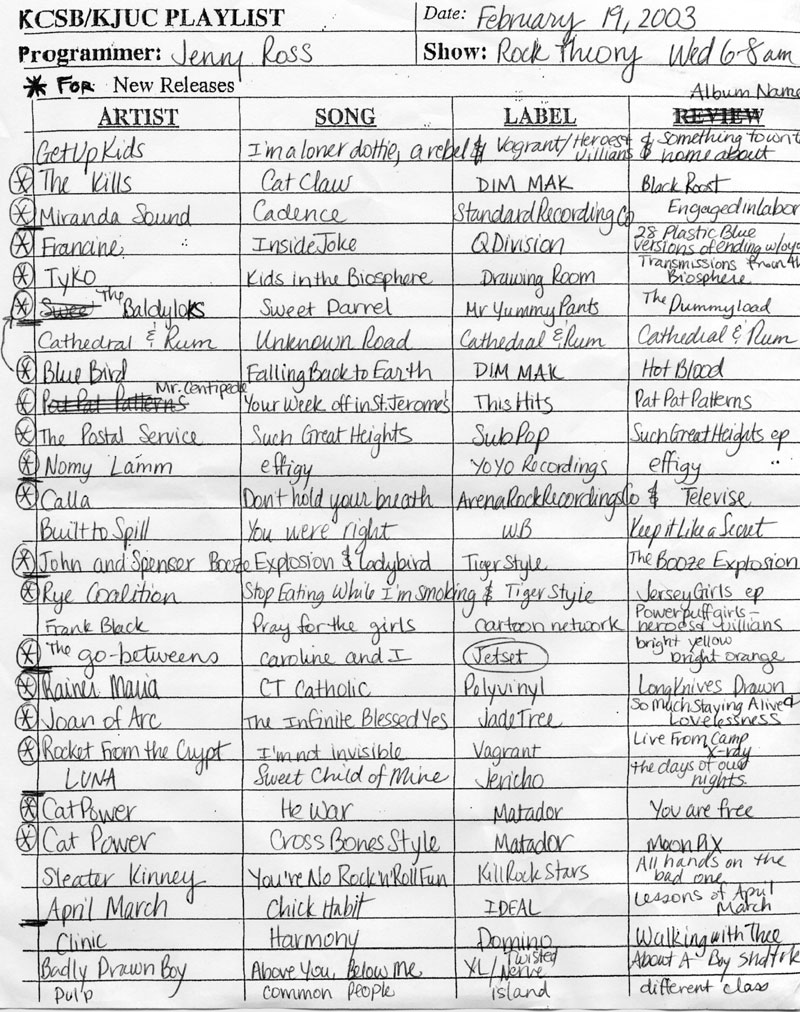 KCSB/KJUC PLAYLIST Date: February 19, 2003
Programmer: Jenny Ross Show: Rock Theory Wed 6-8am
* FOR New Releases
Album Name
ARTIST SONG LABEL REVIEW
Get Up Kids I'm a loner dottie, a rebel & Vagrant/Heroes & Villians & Something to writ home about
* The Kills Cat Claw DIM MAK Black Roost
* Miranda Sound Cadence Standard Recording Co Engaged in labor
* Francine Inside Joke Q Division 28 Plastic Blue versions of ending w/oyo
* Tyko Kids in the Biosphere Drawing Room Transmissions from 4h Biosphere
* Sweet The Baldyloks Sweet Darrel Mr Yummy Pants The Dummyload
Cathedral & Rum Unknown Road Cathedral & Rum Cathedral & Rum
* Blue Bird Falling Back to Earth DIM MAK Hot Blood
* Pat Pat Patterns Mr. Centipede Your Week off in St. Jerome's This Hits Pat Pat Patterns
* The Postal Service Such Great Heights Sub Pop Such Great Heights ep
* Nomy Lamm effigy YOYO Recordings effigy
* Calla Dont hold your breath Arena Rock Recordings Co & Televise
Built to Spill You were right WB Keep it Like a Secret
* John and Spenser Booze Explosion & Ladybird Tiger Style The Booze Explosion
* Rye Coalition Stop Eating While I'm Smoking & Tiger Style Jersey Girls ep
Frank Black Pray for the girls cartoon network Powerpuff girls - heroes & villians
* The go-betweens caroline and I Jetset bright yellow bright orange
* Rainer Maria CT Catholic Polyvinyl Long Knives Drawn
* Joan of Arc The Infinite Blessed Yes Jade Tree So Much Staying Alive & Lovelessness
* Rocket From the Crypt I'm not invisible Vagrant Live From Camp X-ray
LUNA Sweet Child of Mine Jericho the days of our nights
* Cat Power He War Matador You are free
* Cat Power Cross Bones Style Matador Moon Pix
Sleater Kinney You're No Rock'n'Roll Fun Kill Rock Stars All hands on the bad one
April March Chick Habit IDEAL Lessons of April March
Clinic Harmony Domino Walking with Thee
Badly Drawn Boy Above You, Below Me XL/Twisted Nerve About A Boy
Pulp common people island different class